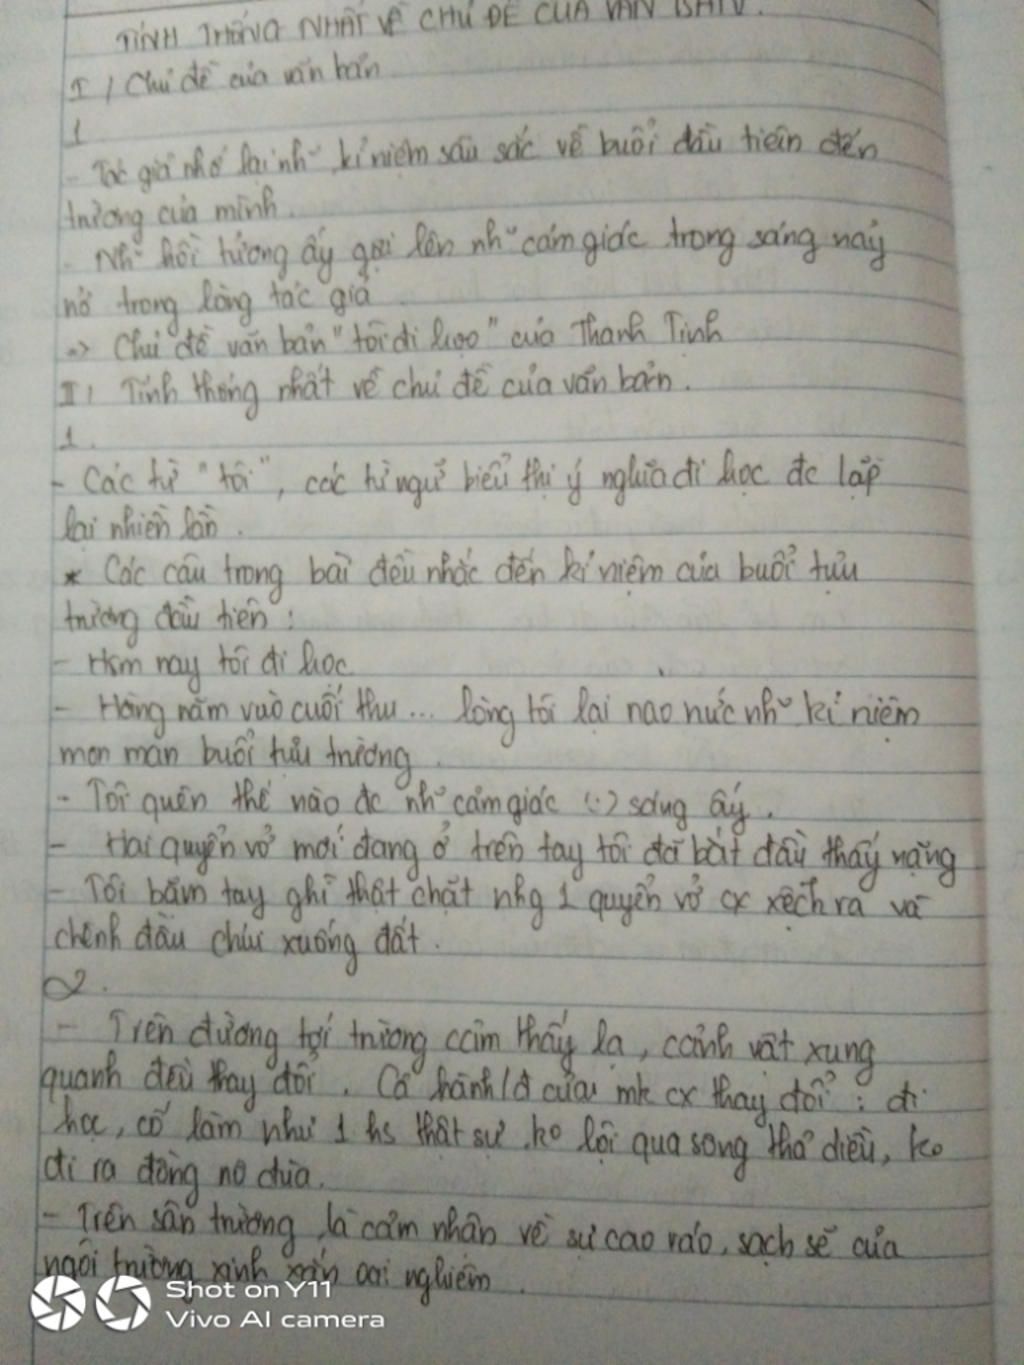 TÍNH THỐNG NHẤT VỀ CHỦ ĐỀ CỦA VĂN BẢN.
I / Chủ đề của văn bản
1
- Tác giả nhớ lại nh~ kỉ niệm sâu sắc về buổi đầu tiên đến
trường của mình.
- Nh~ hồi tưởng ấy gợi lên nh~ cảm giác trong sáng nảy
nở trong lòng tác giả
=> Chủ đề văn bản "tôi đi học" của Thanh Tịnh
II / Tính thống nhất về chủ đề của văn bản.
1.
- Các từ "tôi", các từ ngữ biểu thị ý nghĩa đi học đc lặp
lại nhiều lần.
* Các câu trong bài đều nhắc đến kỉ niệm của buổi tựu
trường đầu tiên :
- Hôm nay tôi đi học
- Hàng năm vào cuối thu ... lòng tôi lại nao nức nh~ kỉ niệm
mơn man buổi tựu trường.
- Tôi quên thế nào đc nh~ cảm giác (.) sáng ấy.
- Hai quyển vở mới đang ở trên tay tôi đã bắt đầu thấy nặng
- Tôi bặm tay ghì thật chặt nhg 1 quyển vở cx xệch ra và
chênh đầu chúi xuống đất.
2.
- Trên đường tới trường cảm thấy lạ, cảnh vật xung
quanh đều thay đổi. Cả hành/đ của mk cx thay đổi : đi
học, cố làm như 1 hs thật sự ko lội qua sông thả diều, ko
đi ra đồng nô đùa.
- Trên sân trường, là cảm nhận về sự cao ráo, sạch sẽ của
ngôi trường xinh xắn oai nghiêm.
Shot on Y11
Vivo AI camera